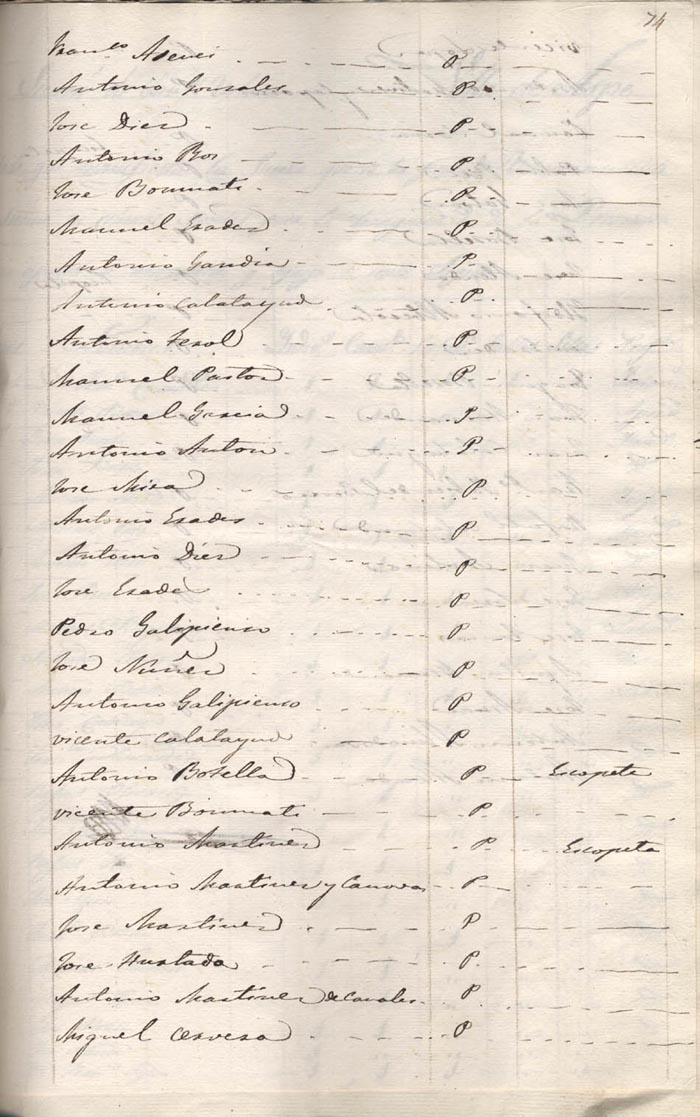 74
Franco Asensi P
Antonio Gonzales P
Jose Diez P
Antonio Ros P
Jose Bonmati P
Manuel Prades P
Antonio Gandia P
Antonio Calatayud P
Antonio Terol P
Manuel Pastor P
Manuel Garcia P
Antonio Anton P
Jose Mira P
Antonio Prades P
Antonio Diez P
Jose P
Pedro Galipienso P
Jose Nuñez P
Antonio Galipienso P
vicente Calatayud P
Antonio Botella P Escopeta
vicente Bonmati P
Antonio Martinez P Escopeta
Antonio Martinez y Canovas P
Jose Martinez P
Jose Hurtado P
Antonio Martinez de Canales P
Miguel Cervera P